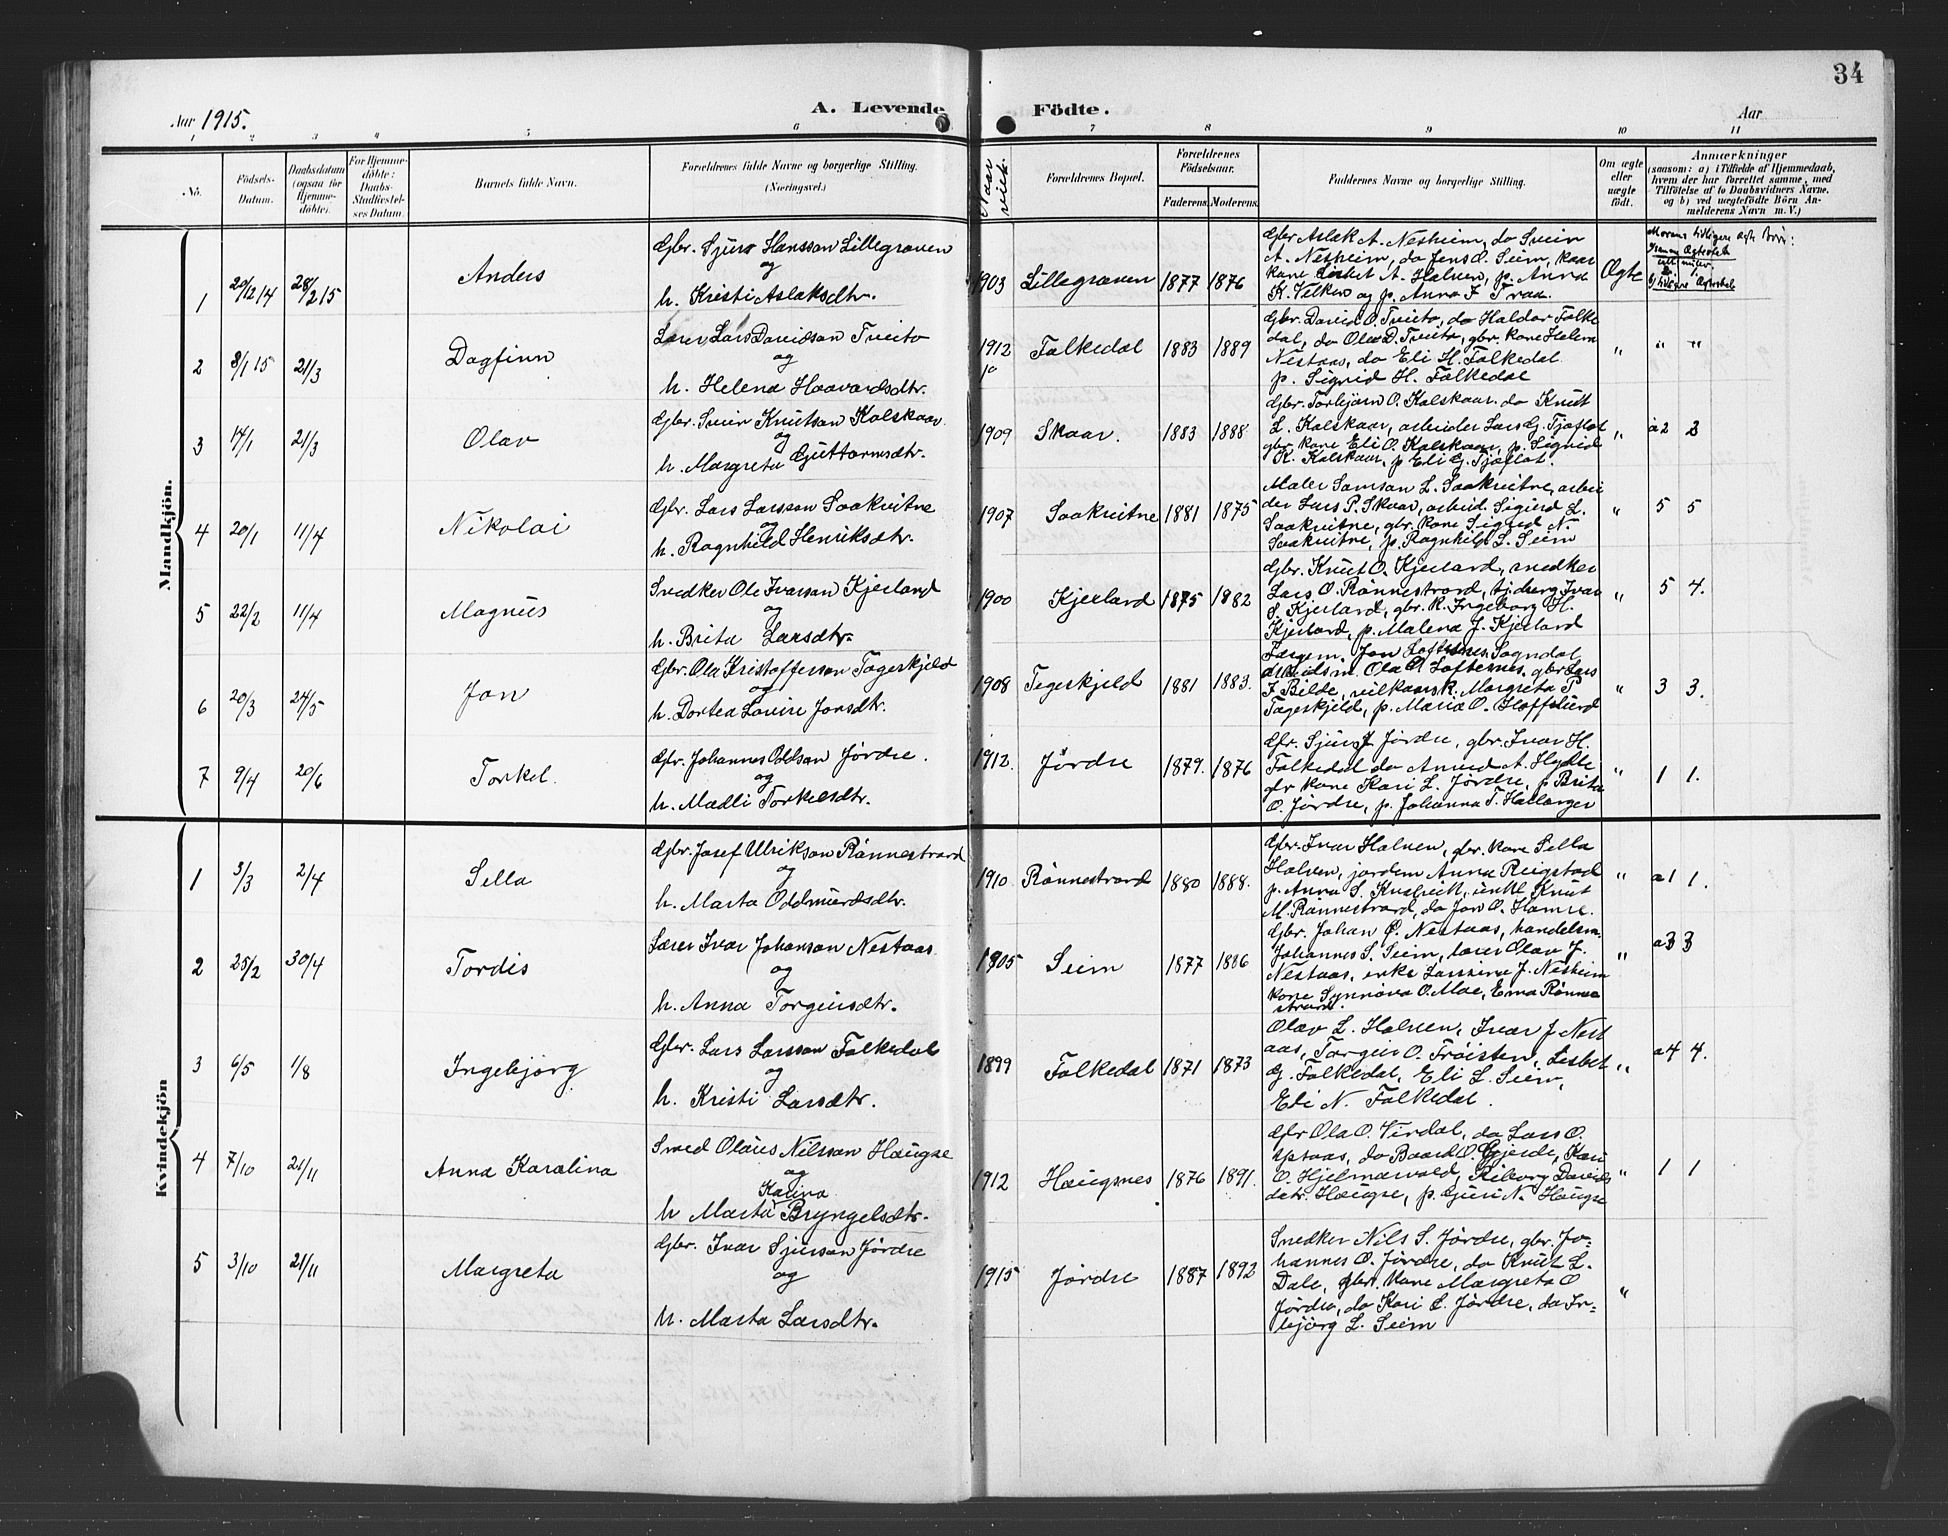 34
Aar 1915.
A. Levende Födte.
Aar
1 2 3 4 5 6 7 8 9 10 11
No.
Födsels-
Datum.
Daabsdatum
(ogsaa for
Hjemme-
döbte).
For Hjemme-
döbte:
Daabs-
Stadfæstel-
ses Datum.
Barnets fulde Navn.
Forældrenes fulde Navne og borgerlige Stilling.
(Næringsvei.)
Forældrenes Bopæl.
Forældrenes
Födselsaar.
Faderens.
Moderens.
Faddernes Navne og borgerlige Stilling.
Om ægte
eller
uægte
født.
Anmærkninger
(saasom: a) i Tilfælde af Hjemmedaab,
hvem der har forrettet samme, med
Tilföielse af to Daabsvidners Navne,
og b) ved uægtefödte Börn An-
melderens Navn m. V.)
Mandkjön.
1 29/12 14 28/2 15 Anders
Gbr. Sjur Hansson Lillegraven
og
h. Kristi Aslaksdtr.
1903 Lillegraven 1877 1876
Gbr Aslak A. Nesheim, do Svein
A. Nesheim, do Jens O. Seim, kaar
kone Lisbet A. Halven, p. Anna
K. Vilkens og p. Anna I Traa.
Ægte
2 3/1 15 21/3 Dagfinn
Lærer Lars Davidson Tveito
og
h. Helena Haavardsdtr.
1912 Folkedal 1883 1889
Gbr. David O. Tveito, do Haldor Folke
dal, do Olav D. Tveito, gbr. kone Helena
Nestaas, do Eli H. Folkedal
p. Sigrid H. Folkedal
„ " "
3 14/1 21/3 Olav
Gbr. Svein Knutson Kolskaar
og
h. Margreta Guttormsdtr.
1909 Skaar. 1883 1888
Gbr. Torbjørn O. Kolskaar. do Knut
L. Kolskaar, arbeider Lars G. Tjoflot
gbr kone Eli O. Kolskaar, p. Sigrid
K. Kolskaar, p Eli G. Tjoflot.
„ a2 2
4 20/1 11/4 Nikolai
Gbr. Lars Larsson Saakvitne
og
h. Ragnhild Henriksdtr.
1907 Saakvitne 1881 1875
Maler Samson L. Saakvitne, arbei
der Lars P. Skaar, arbeid. Sigurd L.
Saakvitne, gbr. kone Sigrid N.
Saakvitne, p. Ragnhild L. Seim
„ 5 5
5 22/2 11/4 Magnus
Snedker Ole Ivarson Kjerland
og
h. Brita Larsdtr.
1900 Kjerland 1875 1882
Gbr. Knut O. Kjerland, snedker
Lars O. Rønnestrand, Ivar
S. Kjerland, gbr. k. Ingeborg H.
Kjerland, p. Malena J. Kjerland
„ 5 4.
6 20/3 24/5 Jon
Gbr. Ola Kristofferson Tageskjeld
og
h. Dortea Lovise Jonsdtr.
1908 Tegeskjeld 1881 1883.
Jon Loftesnes Sogndal
arbeidsm. Ola Loftesnes, gbr Lars
J Bilde, vilkaarsk. Margreta T
Tageskjeld, p. Maria O.
„ 3 3.
7 9/4 20/6 Torkel.
Gbr. Johannes Oddson Jørdre.
og
h. Madli Torkelsdtr.
1912. Jørdre 1879. 1876
Gbr. Sjur J Jørdre, gbr. Ivar H.
Folkedal do Amund A. Hylle
gbr kone Kari L. Jørdre, p Brita
O. Jørdre, p. Johanna T. Hallanger
„ 1 1.
Kvindekjön
1 3/3 2/4 Sella
Gbr. Josef Ulrikson Rønnestrand
og
h. Marta Oddmundsdtr.
1910 Rønnestrand 1880 1888.
Gbr. Ivar Halven, gbr. kone Sella
Halven, jordem Anna Reigstad
p. Anna S. enke Knut
M. Rønnestrand, do Jon O. Hamre.
„ a1 1.
2 25/2 30/4 Tordis
Lærer Ivar Johanson Nestaas
og
h. Anna Torgeirsdtr.
1905 Seim 1877 1886
Gbr. Johan O. Nestaas, handelsm.
Johannes S. Seim, lærer Olav J.
Nestaas, enke Larsina J. Nesheim
kone Synnøva O. Moe, Ema Rønne
strand.
„ a3 3
3 6/5 1/8 Ingebjørg
Gbr. Lars Larsson Folkedal
og
h. Kristi Larsdtr.
1899 Folkedal 1871 1873
Olav L. Halven, Ivar J Nest
aas, Torgeir O. Trøisten, Lisbet
G. Folkedal, Eli L. Seim,
Eli N. Folkedal.
„ a4 4.
4 7/10 21/11 Anna Karalina
Smed Olaus Nilsson Haugse
og
Kalina
h Marta Bryngelsdtr.
1912 Haugsnes 1876 1891.
Gbr Ola O. Virdal, do Lars O.
Opstaas, do Baard O. Gjerde, Kari
O. Hjelmevold, Riborg Davids
datr. Haugse, p. Guri N. Haugse
„ 1 1
5 3/10 21/11 Margreta
Gbr. Ivar Sjurson Jørdre
og
h. Marta Larsdtr.
1915 Jørdre 1887 1892
Snedker Nils S. Jørdre, gbr. Jo-
hannes O. Jørdre, do Knut L.
Dale, gbr. kone Margreta O
Jørdre, do Kari L. Jørdre, do In-
bjørg L. Seim
„